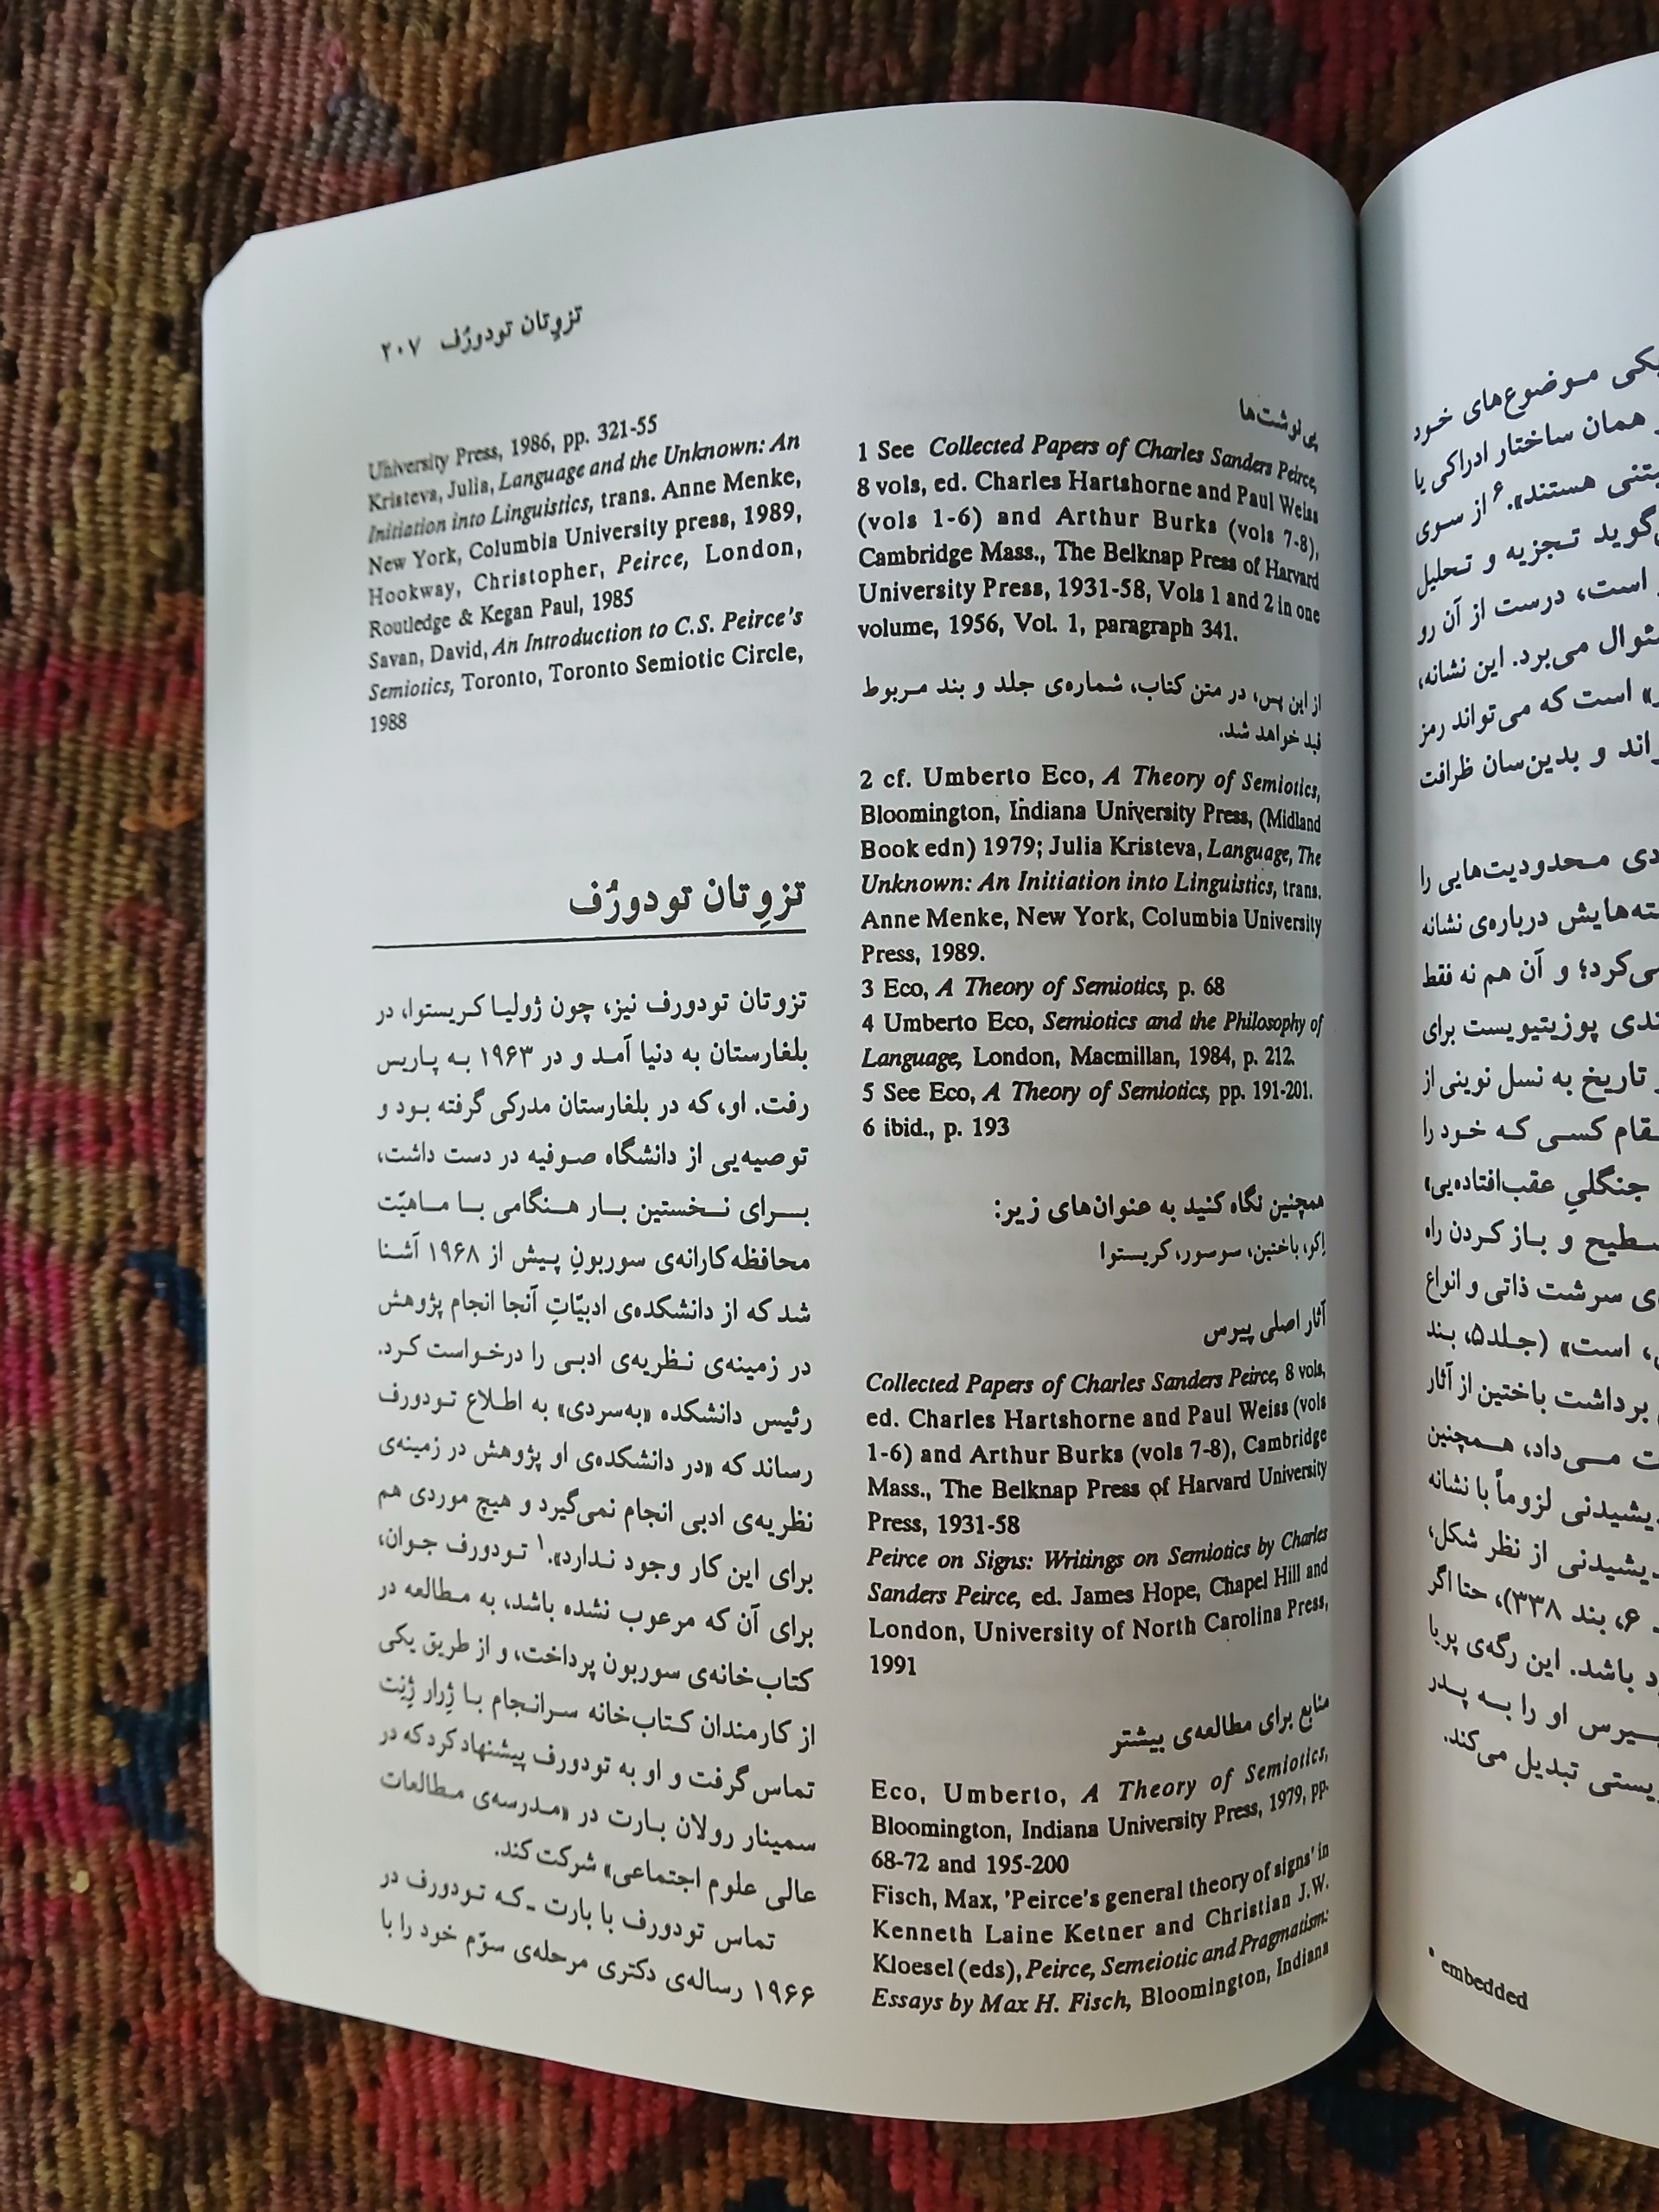 تزوِتان تودورُف ۲۰۷
پی‌نوشت‌ها
1 See Collected Papers of Charles Sanders Peirce,
8 vols, ed. Charles Hartshorne and Paul Weiss
(vols 1-6) and Arthur Burks (vols 7-8),
Cambridge Mass., The Belknap Press of Harvard
University Press, 1931-58, Vols 1 and 2 in one
volume, 1956, Vol. 1, paragraph 341.
از این پس، در متن کتاب، شماره‌ی جلد و بند مربوط
قید خواهد شد.
2 cf. Umberto Eco, A Theory of Semiotics,
Bloomington, Indiana University Press, (Midland
Book edn) 1979; Julia Kristeva, Language, The
Unknown: An Initiation into Linguistics, trans.
Anne Menke, New York, Columbia University
Press, 1989.
3 Eco, A Theory of Semiotics, p. 68
4 Umberto Eco, Semiotics and the Philosophy of
Language, London, Macmillan, 1984, p. 212.
5 See Eco, A Theory of Semiotics, pp. 191-201.
6 ibid., p. 193
همچنین نگاه کنید به عنوان‌های زیر:
اِکو، باختین، سوسور، کریستوا
آثار اصلی پیرس
Collected Papers of Charles Sanders Peirce, 8 vols,
ed. Charles Hartshorne and Paul Weiss (vols
1-6) and Arthur Burks (vols 7-8), Cambridge
Mass., The Belknap Press of Harvard University
Press, 1931-58
Peirce on Signs: Writings on Semiotics by Charles
Sanders Peirce, ed. James Hope, Chapel Hill and
London, University of North Carolina Press,
1991
منابع برای مطالعه‌ی بیشتر
Eco, Umberto, A Theory of Semiotics,
Bloomington, Indiana University Press, 1979, pp.
68-72 and 195-200
Fisch, Max, 'Peirce's general theory of signs' in
Kenneth Laine Ketner and Christian J.W.
Kloesel (eds), Peirce, Semeiotic and Pragmatism:
Essays by Max H. Fisch, Bloomington, Indiana
University Press, 1986, pp. 321-55
Kristeva, Julia, Language and the Unknown: An
Initiation into Linguistics, trans. Anne Menke,
New York, Columbia University press, 1989,
Hookway, Christopher, Peirce, London,
Routledge & Kegan Paul, 1985
Savan, David, An Introduction to C.S. Peirce's
Semiotics, Toronto, Toronto Semiotic Circle,
1988
تزوِتان تودورُف
تزوتان تودورف نیز، چون ژولیا کریستوا، در
بلغارستان به دنیا آمد و در ۱۹۶۳ به پاریس
رفت. او، که در بلغارستان مدرکی گرفته بود و
توصیه‌یی از دانشگاه صوفیه در دست داشت،
برای نخستین بار هنگامی با ماهیّت
محافظه‌کارانه‌ی سوربونِ پیش از ۱۹۶۸ آشنا
شد که از دانشکده‌ی ادبیّاتِ آنجا انجام پژوهش
در زمینه‌ی نظریه‌ی ادبی را درخواست کرد.
رئیس دانشکده «به‌سردی» به اطلاع تودورف
رساند که «در دانشکده‌ی او پژوهش در زمینه‌ی
نظریه‌ی ادبی انجام نمی‌گیرد و هیچ موردی هم
برای این کار وجود ندارد».۱ تودورف جوان،
برای آن که مرعوب نشده باشد، به مطالعه در
کتاب‌خانه‌ی سوربون پرداخت، و از طریق یکی
از کارمندان کتاب‌خانه سرانجام با ژِرار ژِنِت
تماس گرفت و او به تودورف پیشنهاد کرد که در
سمینار رولان بارت در «مدرسه‌ی مطالعات
عالی علوم اجتماعی» شرکت کند.
تماس تودورف با بارت ـ که تودورف در
۱۹۶۶ رساله‌ی دکتری مرحله‌ی سوّم خود را با
یکی موضوع‌های خود
همان ساختار ادراکی یا
هستند».۶ از سوی
تجزیه و تحلیل
است، درست از آن رو
می‌برد. این نشانه،
است که می‌تواند رمز
و بدین‌سان ظرافت
محدودیت‌هایی را
درباره‌ی نشانه
و آن هم نه فقط
پوزیتیویست برای
تاریخ به نسل نوینی از
کسی که خود را
جنگلیِ عقب‌افتاده‌یی»
و باز کردن راه
سرشت ذاتی و انواع
است» (جلد۵، بند
برداشت باختین از آثار
می‌داد، همچنین
لزوماً با نشانه
از نظر شکل،
۶، بند ۳۳۸)، حتا اگر
باشد. این رگه‌ی پویا
او را به پدر
تبدیل می‌کند.
* embedded